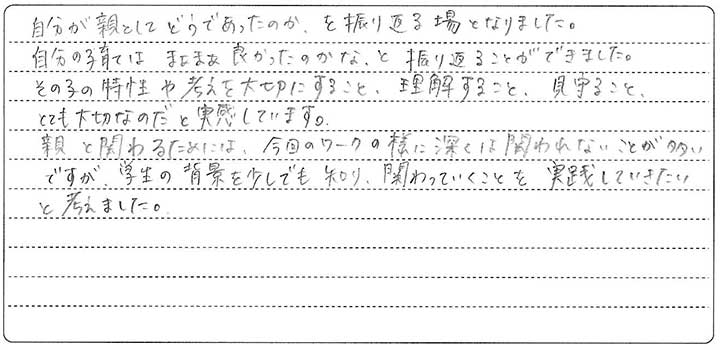 自分が親としてどうであったのか、を振り返る場となりました。
自分の子育ては まぁまぁ 良かったのかな、と 振り返ることができました。
その子の特性や考えを大切にすること、理解すること、見守ること、
とても大切なのだと実感しています。
親と関わるためには、今回のワークの様に深くは関われないことが多い
ですが、学生の背景を少しでも知り、関わっていくことを実践していきたい
と考えました。